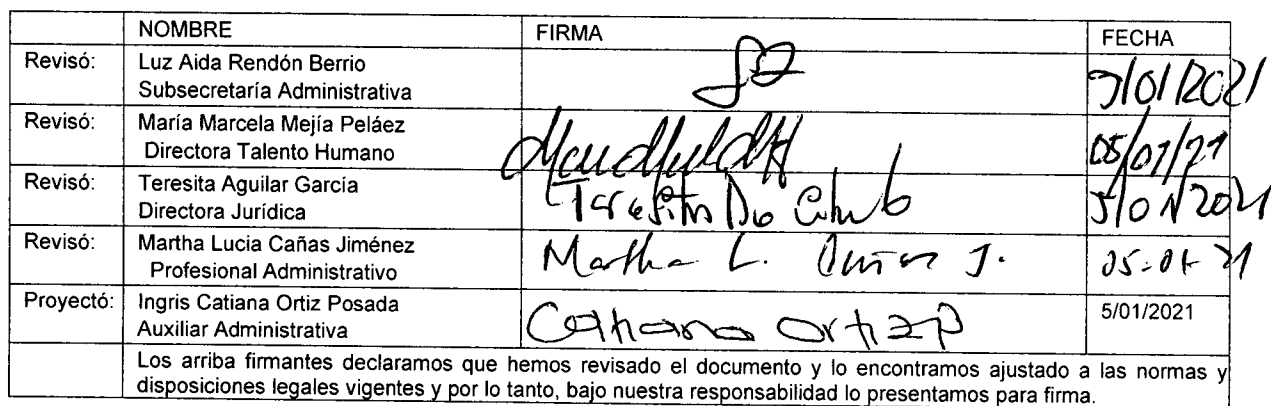 NOMBRE FIRMA FECHA
Revisó: Luz Aida Rendón Berrio
Subsecretaría Administrativa
/01/2021
Revisó: María Marcela Mejía Peláez
Directora Talento Humano
05/01/21
Revisó: Teresita Aguilar García
Directora Jurídica
Teresita
5/01/2021
Revisó: Martha Lucia Cañas Jiménez
Profesional Administrativo
Martha L. J.
05-01-21
Proyectó: Ingris Catiana Ortiz Posada
Auxiliar Administrativa
Catiana Ortiz P
5/01/2021
Los arriba firmantes declaramos que hemos revisado el documento y lo encontramos ajustado a las normas y
disposiciones legales vigentes y por lo tanto, bajo nuestra responsabilidad lo presentamos para firma.